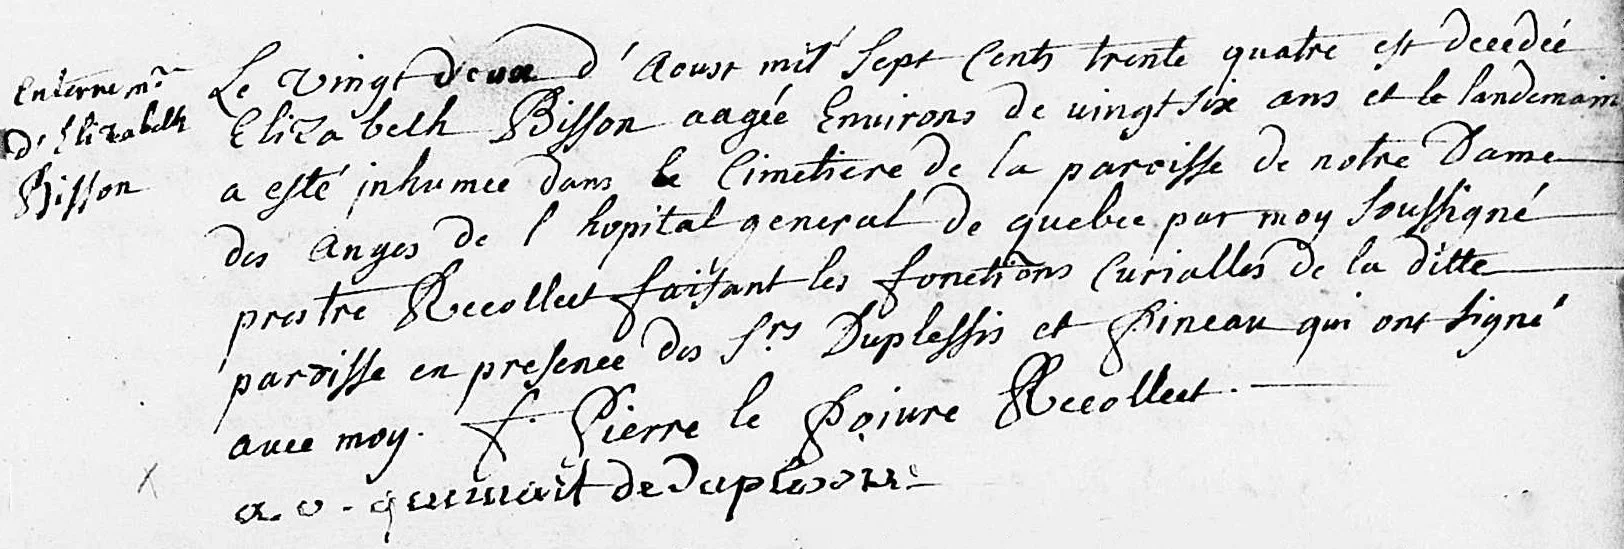 Enterrem.r
d'Elizabeth
Bisson
Le vingt deux d'Aoust mil sept cents trente quatre est decedée
Elizabeth Bisson aagée Environs de vingt six ans et le landemain
a esté jnhumee dans le Cimetiere de la paroisse de notre Dame
des anges de l'hopital general de quebec par moy soussigné
prestre Recollect faisant les fonctions Curialles de la ditte
paroisse en presence des S.rs Duplessis et Pineau qui ont signé
avec moy. f. Pierre le Poivre Recollect.
a. v. de